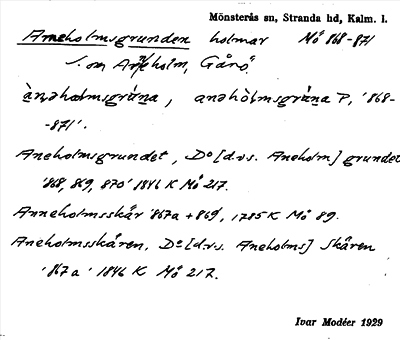 Mönsterås sn, Stranda hd, Kalm. l.
Aneholmsgrunden holmar Mö 868-871
S. om Aneholm, Gårö.
ànəhωlmsgrúna, anəhòlmsgrúna P, '868-
-871'.
Aneholmsgrundet, Dº [d.v.s. Aneholm] grundet
'868, 869, 870' 1846 K Mö 217.
Anneholmsskär '867a + 869', 1785 K Mö 89.
Aneholmsskären, Dº [d.v.s. Aneholms] Skären
'867a' 1846 K Mö 217.
Ivar Modéer 1929